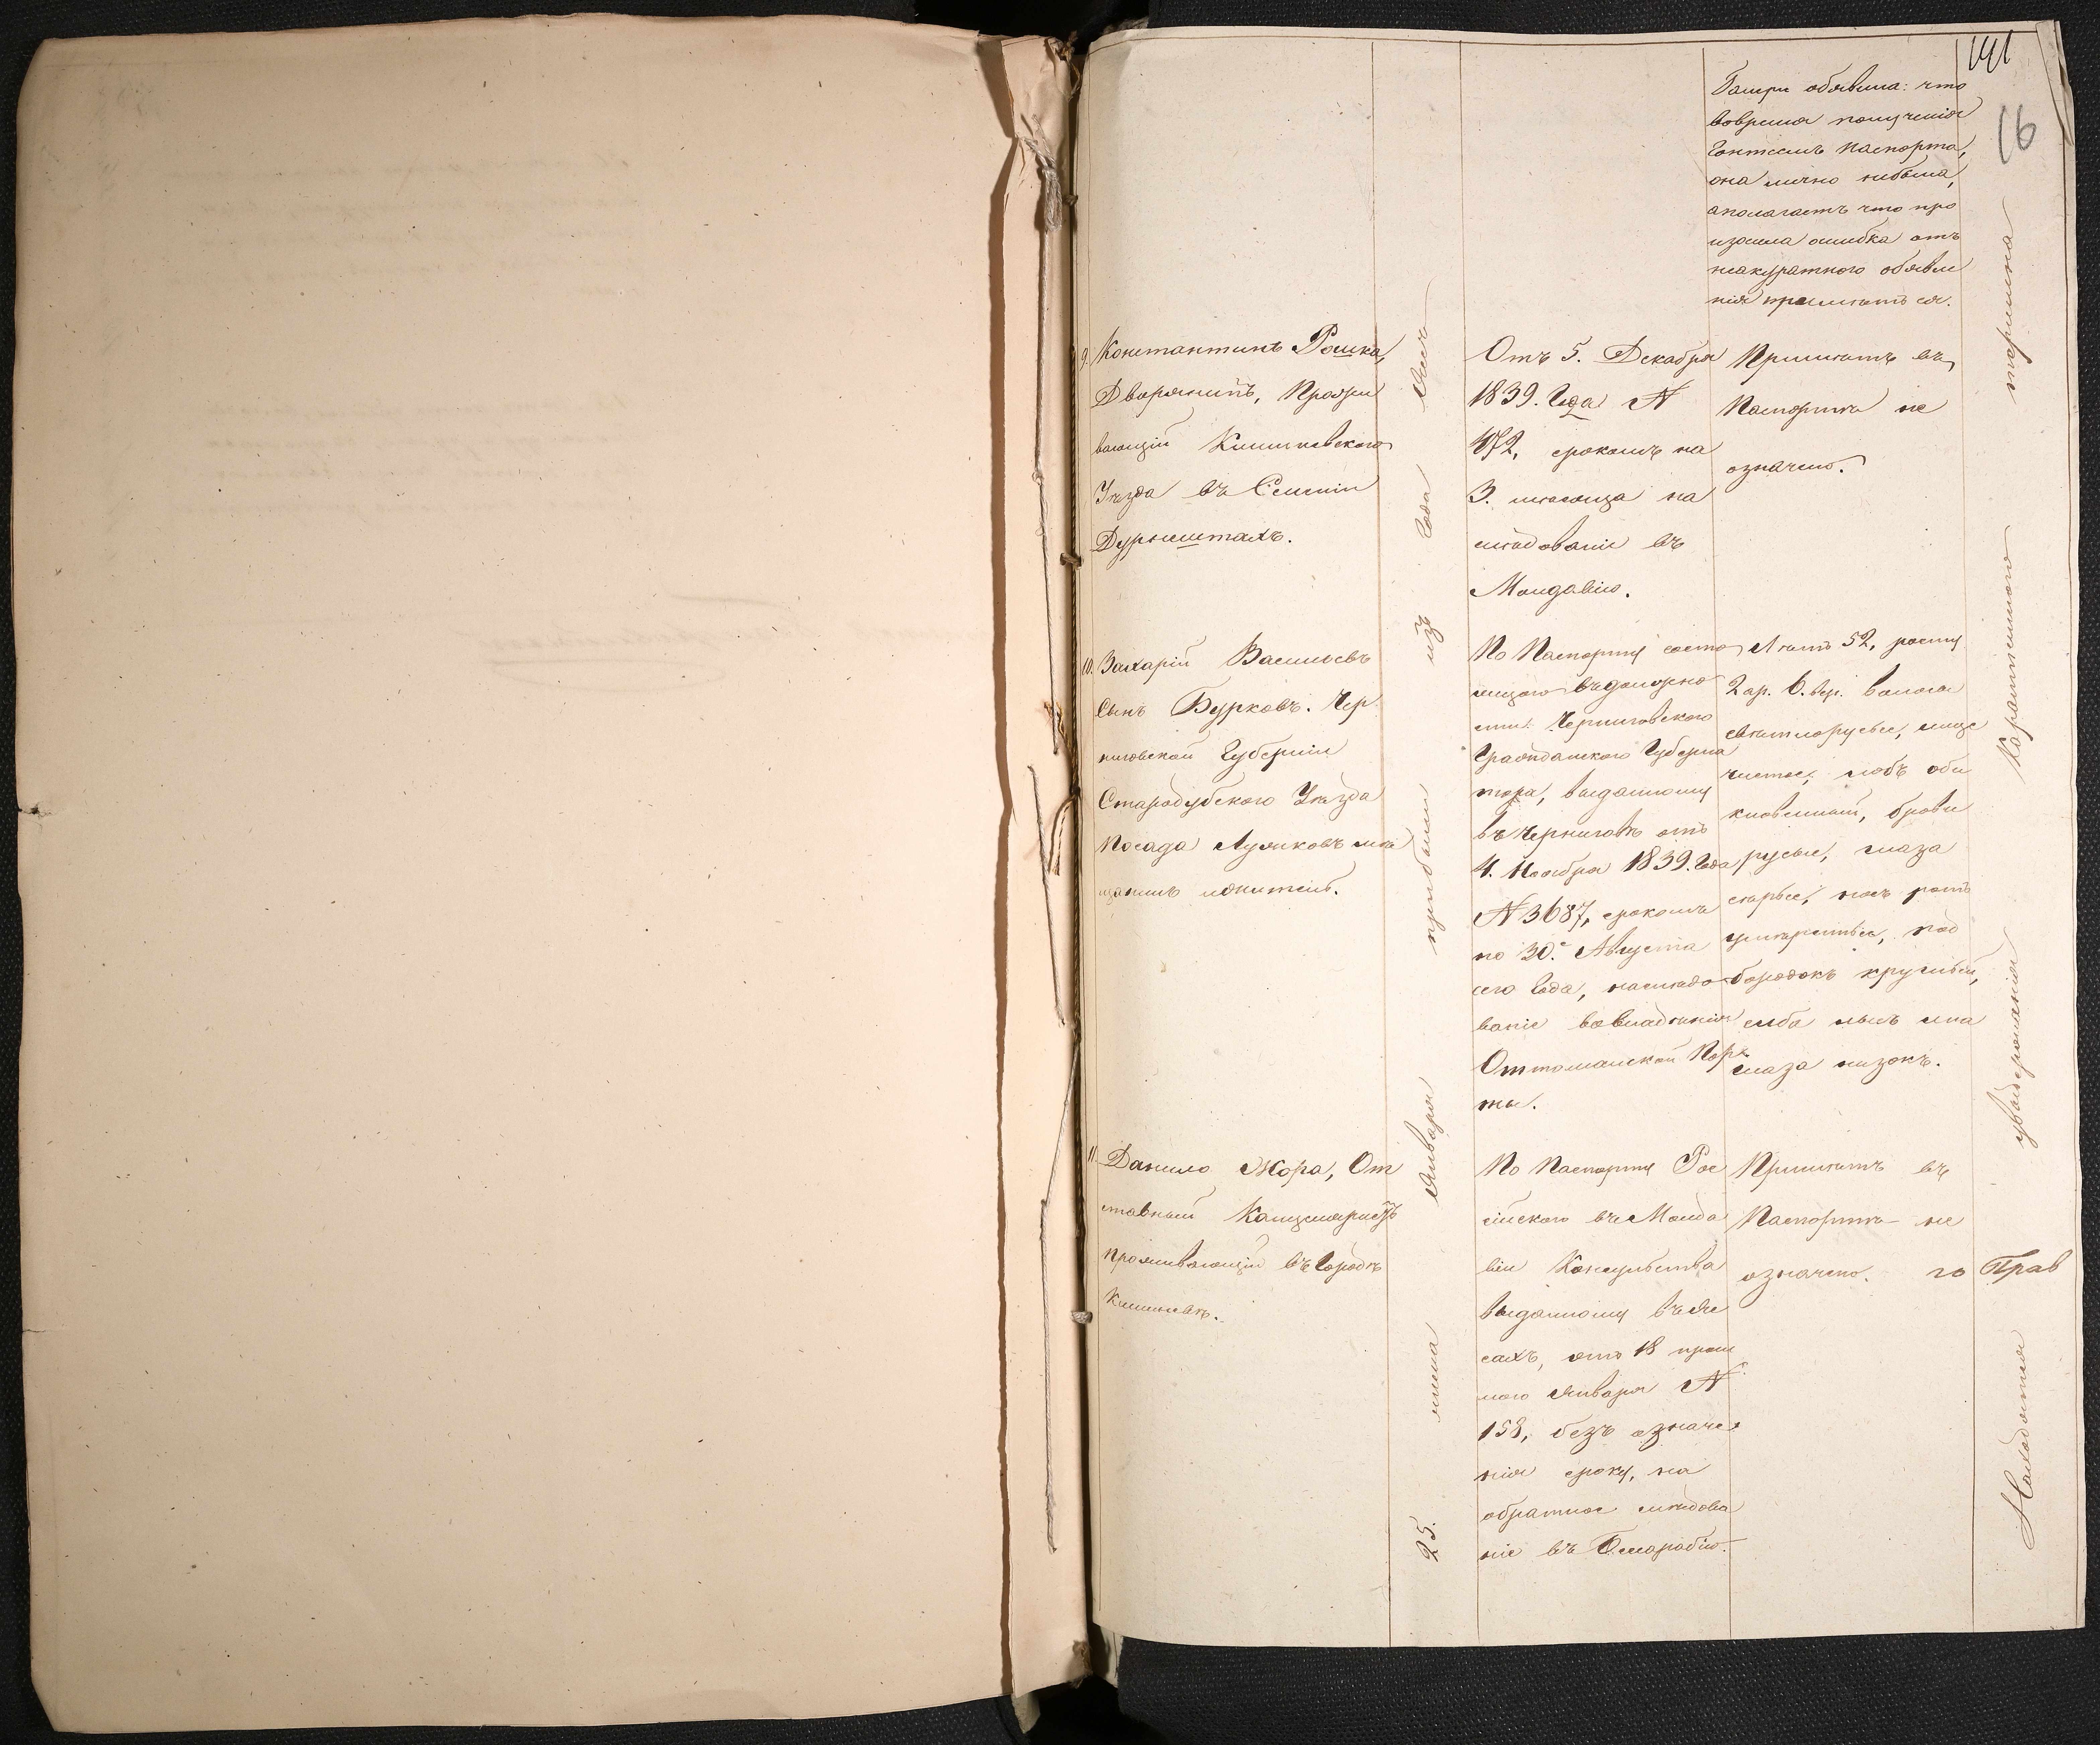 141
16
Гаири обявила: что
вовремя получения
Гонтемъ паспорта,
она лично небыла,
аполагаетъ что про
изошла ошибка отъ
неакуратного обявле
нія прилитъ ея.
9. Константинъ Рошка,
Дворянинъ, Прожи
вающій Кишиневскаго
Уѣзда въ Селеніи
Дурлештахъ.
Отъ 5. Декабря
1839. Года №
472, срокомъ на
3. мѣсяца на
слѣдованіе въ
Молдавію.
Примѣтъ въ
Паспортѣ не
означено.
10. Захарій Васильевъ
Сынъ Бурковъ. Чер
ниговской Губерніи
Стародубского Уѣзда
Посада Лужковъ мѣ
щанинъ житель.
По Паспорту состо
ящаго въ должно
сти Черниговского
Гражданского Губерна
тора, выданному
въ Черниговѣ отъ
4. Ноября 1839. Года
№ 3687, срокомъ
по 30е Августа
сего Года, наслѣдо
ваніе вовладѣнія
Оттоманской Пор
ты.
Лѣтъ 52, росту
2 ар. 6. вер. волоса
свѣтлорусые, лице
чистое, лобъ обы
кновенный, брови
русые, глаза
сѣрые, носъ ротъ
умѣренные, под
бородокъ круглый,
глаза низокъ.
11. Данило Жора, От
ставный Канцеляристъ
проживающій въ Городѣ
Кишиневѣ.
По Паспорту Рос
сійского въ Молда
віи Консульства
выданному въ Яс
сахъ, отъ 18 прош
лого Января №
158, безъ означе
нія сроку, на
обратное слѣдова
ніе въ Бесарабію.
Примѣтъ въ
Паспортѣ не
означено.
го Прав
25. числа Января прибыли изъ Года Яссъ
Находится Карантинного